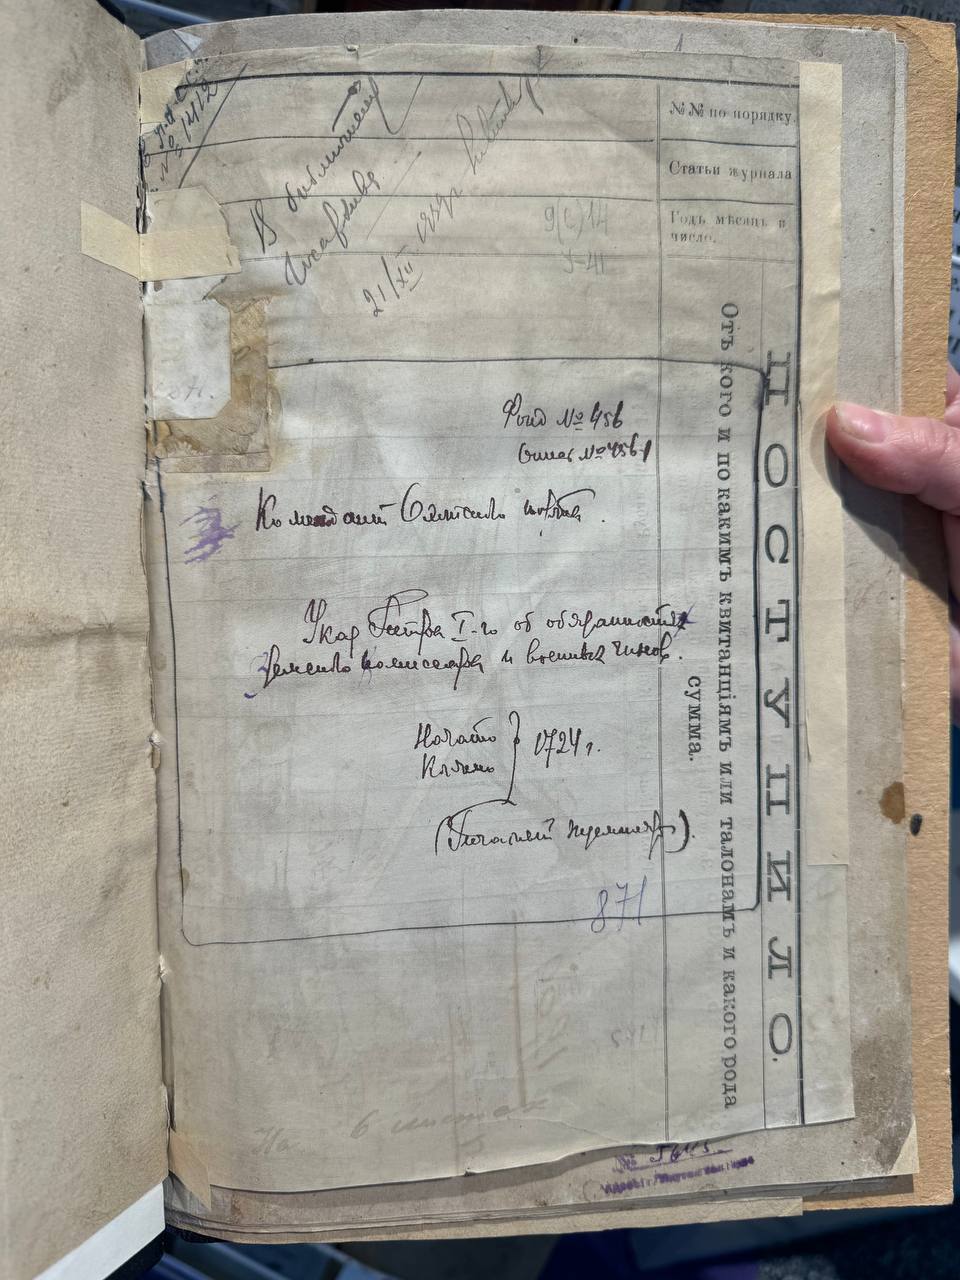 № 1412
В библиотеку
Госархива
21/XII 1939г.
9(С)14
У-41
№№ по порядку.
Статьи журнала
Годъ мѣсяцъ и
число.
ПОСТУПИЛО.
Отъ кого и по какимъ квитанціямъ или талонамъ и какого рода
сумма.
Фонд № 456
Опись № 456-1
Комендант
Указ Петра I-го об обязанностях
земского комиссара и военных чинов.
Начато
Кончено
1724 г.
(Печатный экземпляр).
871
На 6 листах